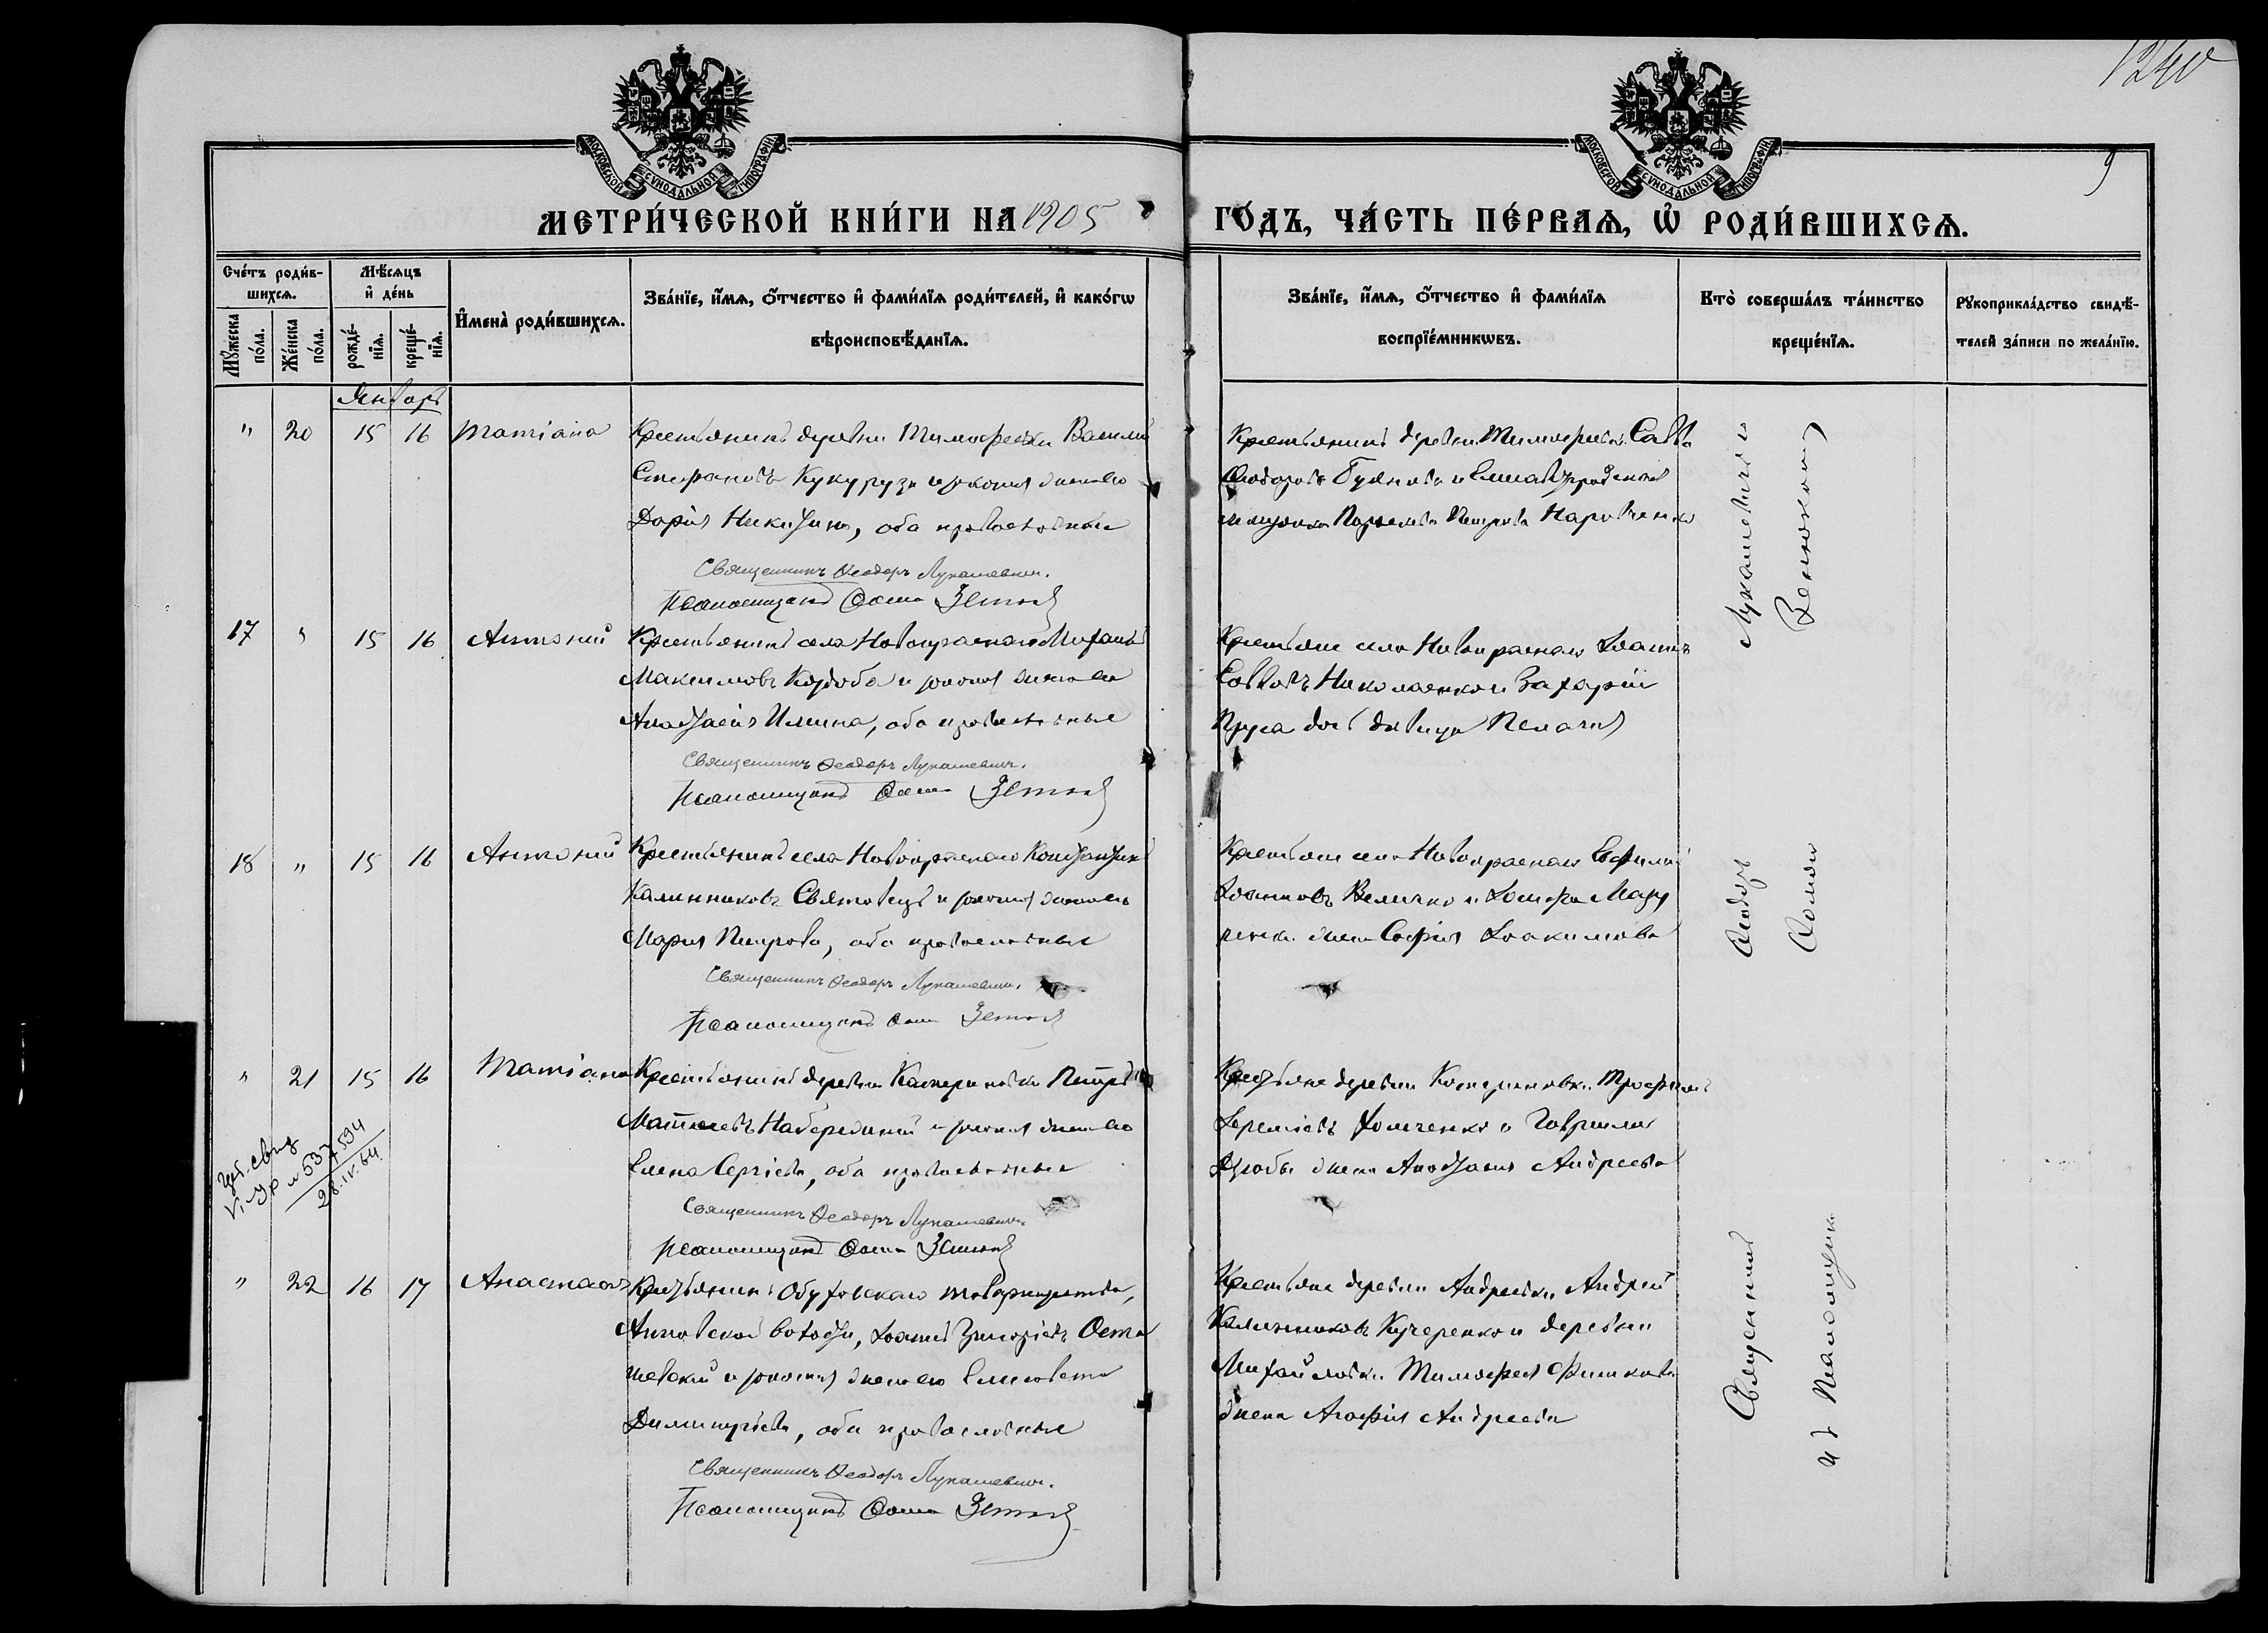 1240
9
МОСКОВСКОЙ СѴНОДАЛЬНОЙ ТИПОГРАФІИ
МОСКОВСКОЙ СѴНОДАЛЬНОЙ ТИПОГРАФІИ
МЕТРИ́ЧЕСКОЙ КНИ́ГИ НА 1905
ГО́ДЪ, ЧА́СТЬ ПЕ́РВАѦ, Ѡ҆ РОДИ́ВШИХСѦ.
Сче́тъ роди́в-
шихсѧ.
Мꙋ́жеска
по́ла.
Же́нска
по́ла.
Мѣ́сѧцъ
и҆ де́нь
рожде́-
нїѧ.
креще́-
нїѧ.
И҆мена̀ роди́вшихсѧ.
Зва́нїе, и҆́мѧ, ѻ҆́тчество и҆ фами́лїѧ роди́телей, и҆ како́гѡ
вѣроисповѣ́данїѧ.
Зва́нїе, и҆́мѧ, ѻ҆́тчество и҆ фами́лїѧ
воспрїе́мникѡвъ.
Кто̀ соверша́лъ та́инство
креще́нїѧ.
Рꙋкоприкла́дство свидѣ́-
телей за́писи по жела́нїю.
Январь
" 20 15 16 Татіана
Крестьянинъ деревни Тимофеевки Василій
Стефановъ Кукуруза и законная жена его
Дарія Никитина, оба православные
Священникъ Ѳеодоръ Лукашевич.
Псаломщикъ Ѳома
Крестьянинъ деревни Тимофеевки Савва
Ѳеодоровъ и Елисаветградская
мѣщанка Петрова
17 " 15 16 Антоній
Крестьянинъ села Новокраснаго Михаилъ
Максимовъ Коздоба и законная жена его
Анастасія Ильина, оба православные
Священникъ Ѳеодоръ Лукашевич.
Псаломщикъ Ѳома
Крестьяне села Новокраснаго Іоаннъ
Савковъ Николаенко и Захарій
Пруса дочь девица Пелагія
18 " 15 16 Антоній
Крестьянинъ села Новокраснаго Константинъ
Калинниковъ Святовецъ и законная жена его
Марія Петрова, оба православные
Священникъ Ѳеодоръ Лукашевич.
Псаломщикъ Ѳома
Крестьяне села Новокраснаго Ефимій
Іоанновъ Величко и Іосифа
жена Софія Іоакимова
" 21 15 16 Татіана
Крестьянинъ деревни Катериновки Петръ
Матѳеевъ Набережный и законная жена его
Елена Сергіева, оба православные
Священникъ Ѳеодоръ Лукашевич.
Псаломщикъ Ѳома
Крестьяне деревни Катериновки Трофимъ
Іереміевъ Хомченко и Гавріила
Дробы жена Анастасія Андреева
28.IV.64
" 22 16 17 Анастасія
Крестьянинъ Обуховскаго товарищества,
Анновской волости, Іоаннъ Григоріевъ Оста
шевскій и законная жена его Елисавета
Димитріева, оба православные
Священникъ Ѳеодоръ Лукашевич.
Псаломщикъ Ѳома
Крестьяне деревни Андреевки Андрей
Калинниковъ Кучеренко и деревни
Михайловки Тимофея Фишкова
жена Агафія Андреева
Священникъ Ѳеодоръ Лукашевичъ
и Псаломщикъ Ѳома